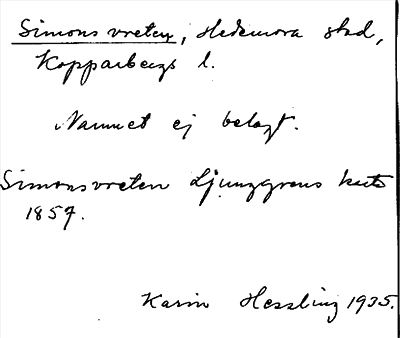 Simonsvreten, Hedemora stad,
Kopparbergs l.
Namnet ej belagt.
Simonsvreten Ljunggrens karta
1857.
Karin Hessling 1935.